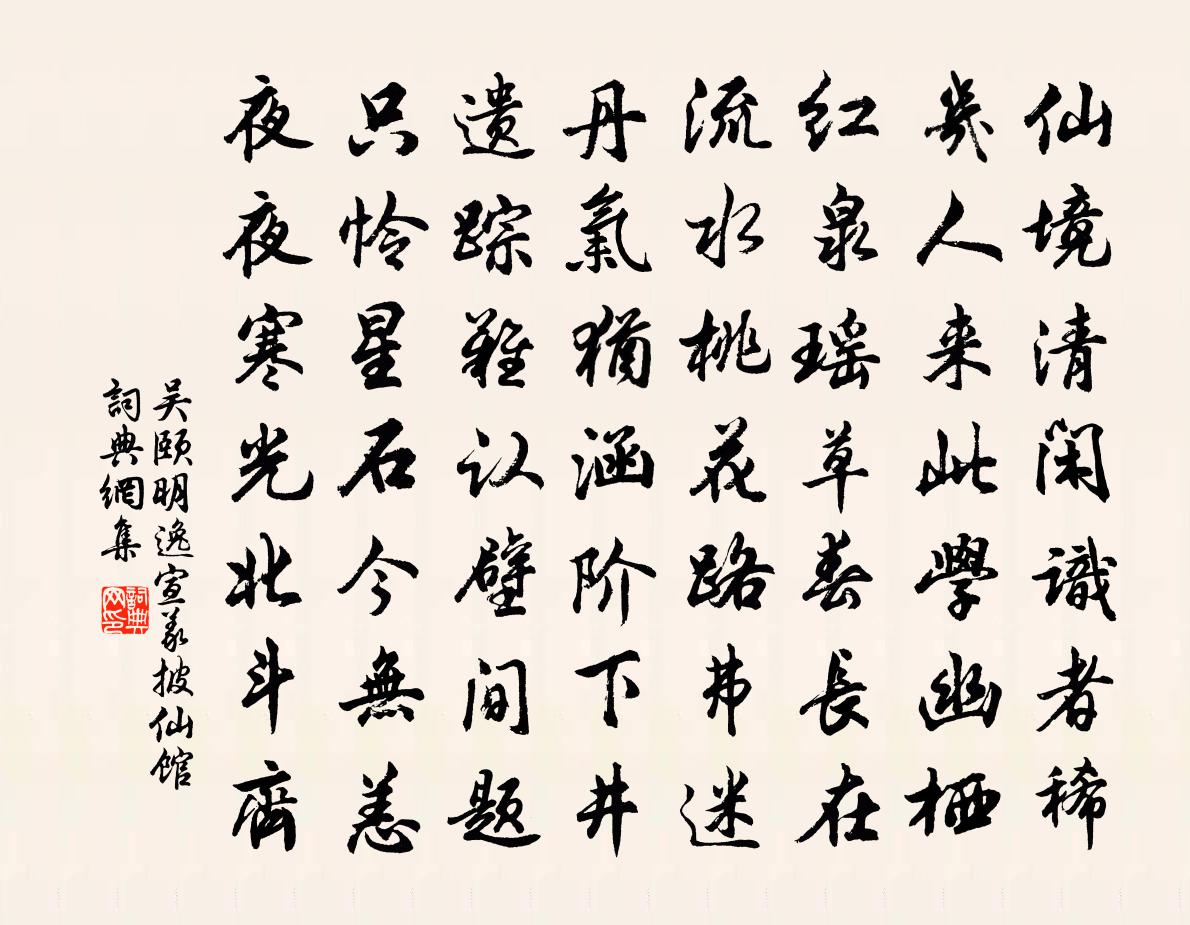 仙境清闲識者稀
幾人来此學幽栖
红泉瑶草春長在
流水桃花路弗迷
丹氣猶涵阶下井
遗踪難认壁间题
只怜星石今無恙
夜夜寒光北斗齊
吴颐明逸宣義披仙馆
詞典網集
詞典网印